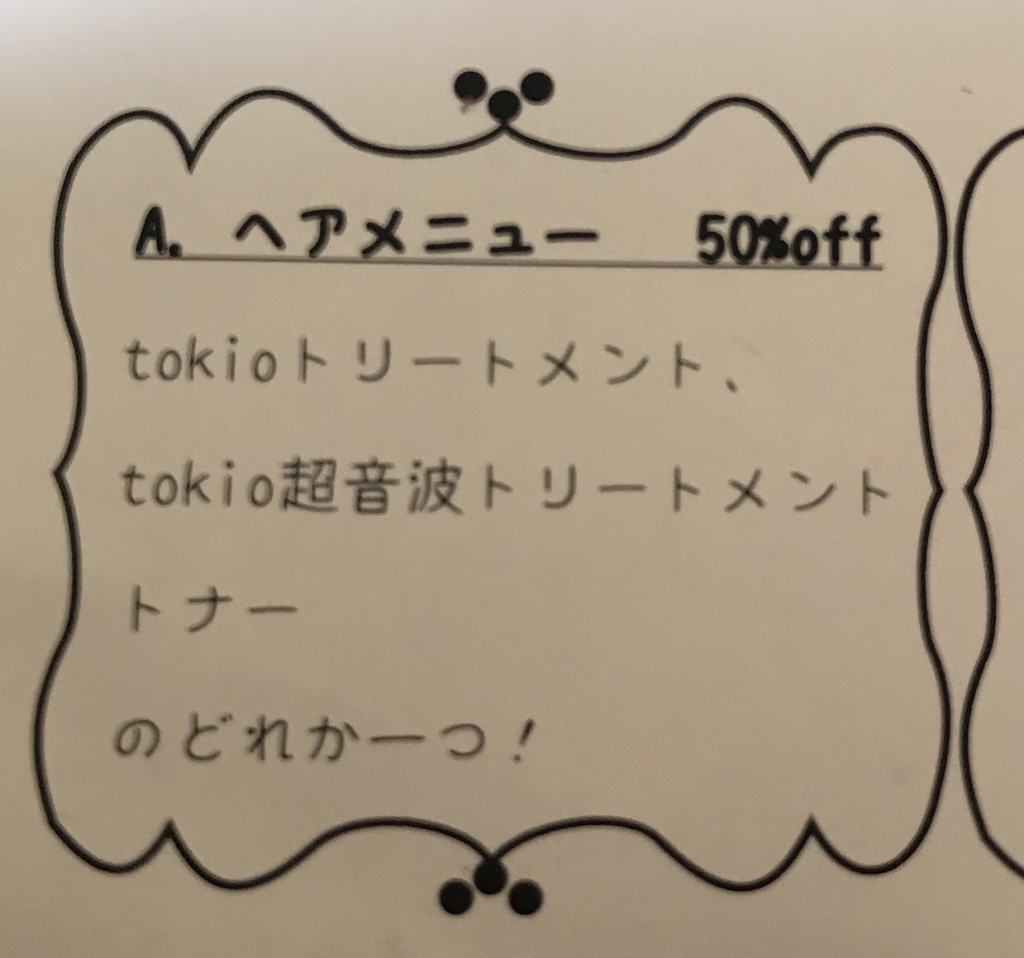 A. ヘアメニュー　50%off
tokioトリートメント、
tokio超音波トリートメント
トナー
のどれか一つ!